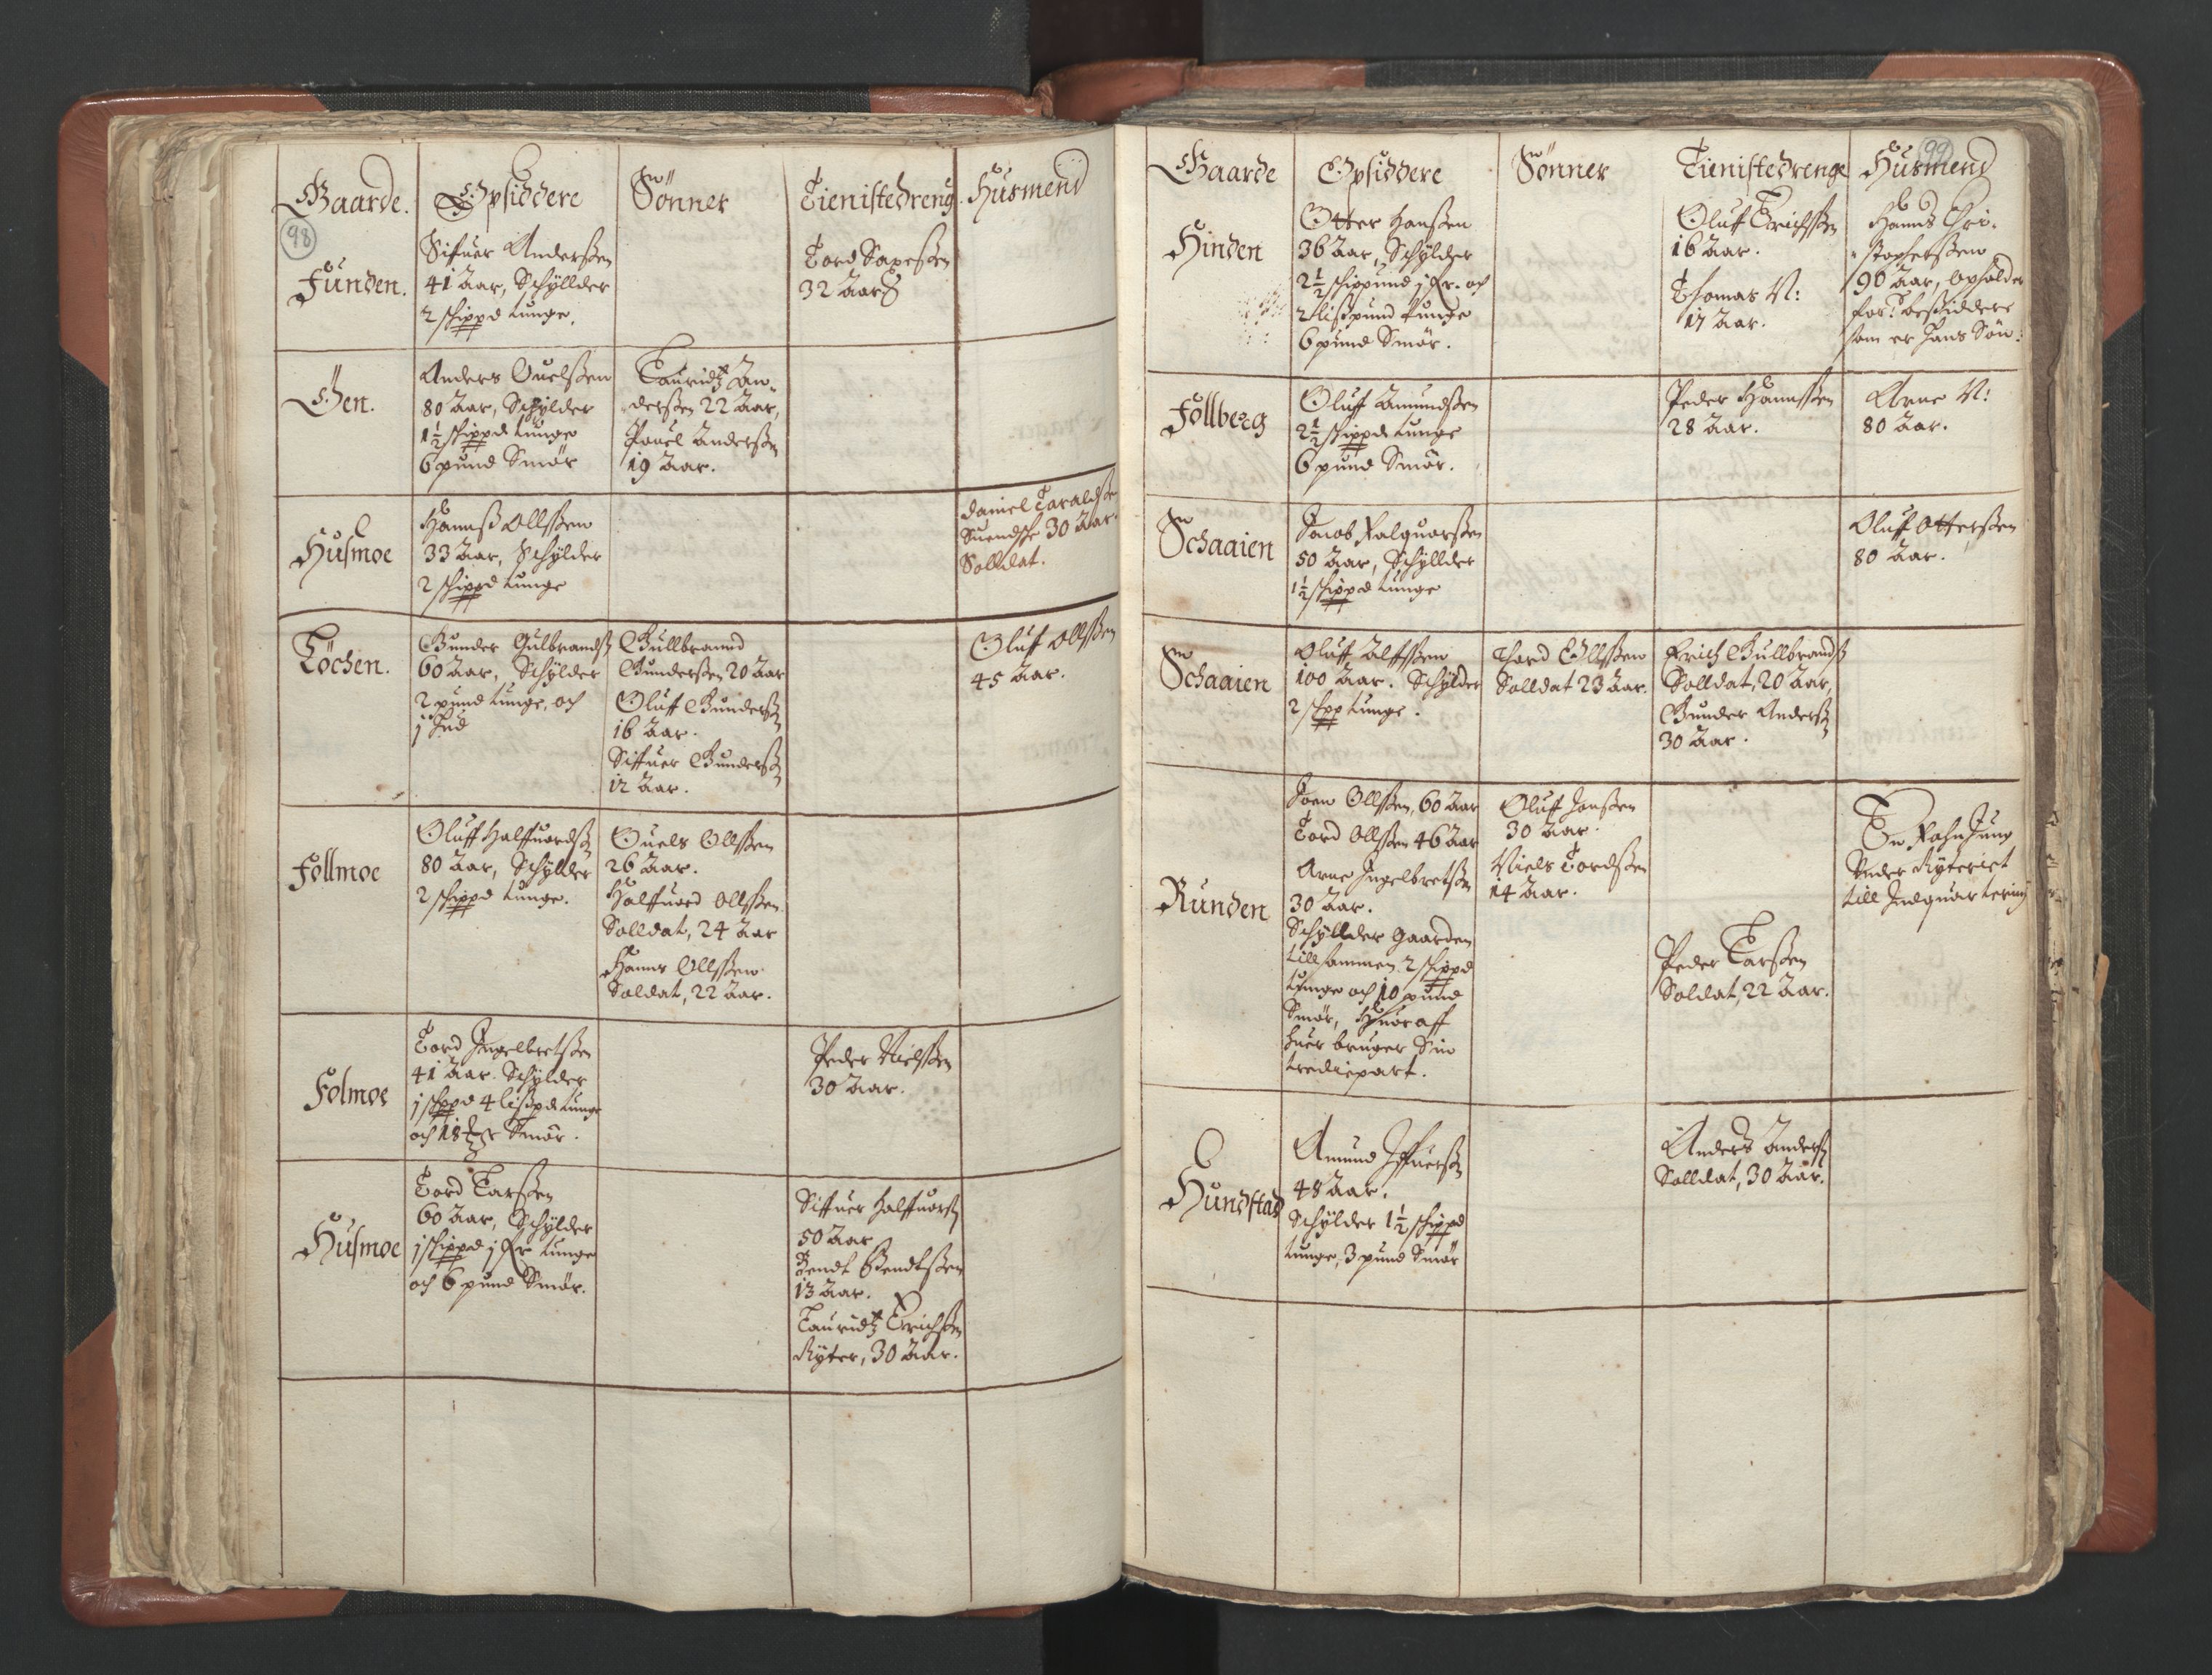 98
Gaarde. Opsiddere Sönner Tienistedreng. Husmend
Funden.
Siffuer Anderßen
41 Aar, Schyllder
2 schippd tunge.
Tord Saxeßen
32 Aar
Gen.
Anders Ouelßen
80 Aar, Schylder
1½ schippd tunge
6 pund Smör
Lauridtz An-
derßen 22 Aar,
Pouel Anderßen
19 Aar.
Husmoe
Hannß Ollßen
33 Aar, Schylder
2 schippd tunge
Daniel Taraldße
Suendße 30 Aar.
Solldat.
Löchen.
Gunder Gulbrandß
60 Aar, Schylder
2 pund tunge, och
j hud
Gullbrannd
Gunderßen 20 Aar
Oluff Gunderß
16 Aar.
Siffuer Gunderß
12 Aar.
Oluff Ollßen
45 Aar.
Föllmoe
Oluff Halffuordß
80 Aar, Schylder
2 schippd tunge.
Ouels Ollßen
26 Aar.
Halffuord Ollßen
Solldat, 24 Aar
Hanns Ollßen
Soldat, 22 Aar.
Folmoe
Tord Ingelbretßen
41 Aar. Schylder
j schppd 4 lißpd tunge
och 18 Smör.
Peder Nielßen
30 Aar.
Husmoe
Tord Larßen
60 Aar, Schylder
j schippd j fr tunge
och 6 pund Smör.
Siffuer Halffuorß
50 Aar
Bendt Bendtßen
13 Aar.
Lauridtz Erichßen
Ryter, 30 Aar.
99
Gaarde Opsiddere Sönner Tienistedrenge Husmend
Hinden
Otter Hanßen
36 Aar, Schylder
2½ schippund j fr. och
2 lißpund tunge
6 pund Smör.
Oluff Erichßen
16 Aar.
Thomas N:
17 Aar.
Hanns Chri-
stopherßen
90 Aar, opholder
for: beßiddere
som er hans Sön:
Föllberg
Oluff Amundßen
2½ schippd tunge
6 pund Smör.
Peder Hannßen
28 Aar.
Arne N:
80 Aar.
Schaaien
Jacob Falquorßen
50 Aar, Schyllder
1½ schippd tunge
Oluff Otterßen
80 Aar.
Schaaien
Oluff Alffßen
100 Aar. Schylder
2 schpp tunge.
Thord Ollßen
Solldat 23 Aar.
Erich Gullbrandß
Solldat, 20 Aar,
Gunder Anderß
30 Aar.
Runden
Joen Ollßen, 60 Aar
Tord Ollßen 46 Aar
Arne Ingelbretßen
30 Aar.
Schyllder gaarden
tillsammen 2 schippd
tunge och 10 pund
Smör, Huoraff
huer bruger Sin
trediepart.
Oluff Jonßen
30 Aar.
Niels Tordßen
14 Aar.
Peder Larßen
Soldat, 22 Aar.
En Fahn Jung
Under Ryteriet
till Indquartering
Hundstad
Amund Iffuerß
48 Aar.
Schylder 1½ schippd
tunge, 3 pund Smör
Anders Anderß
Solldat, 30 Aar.